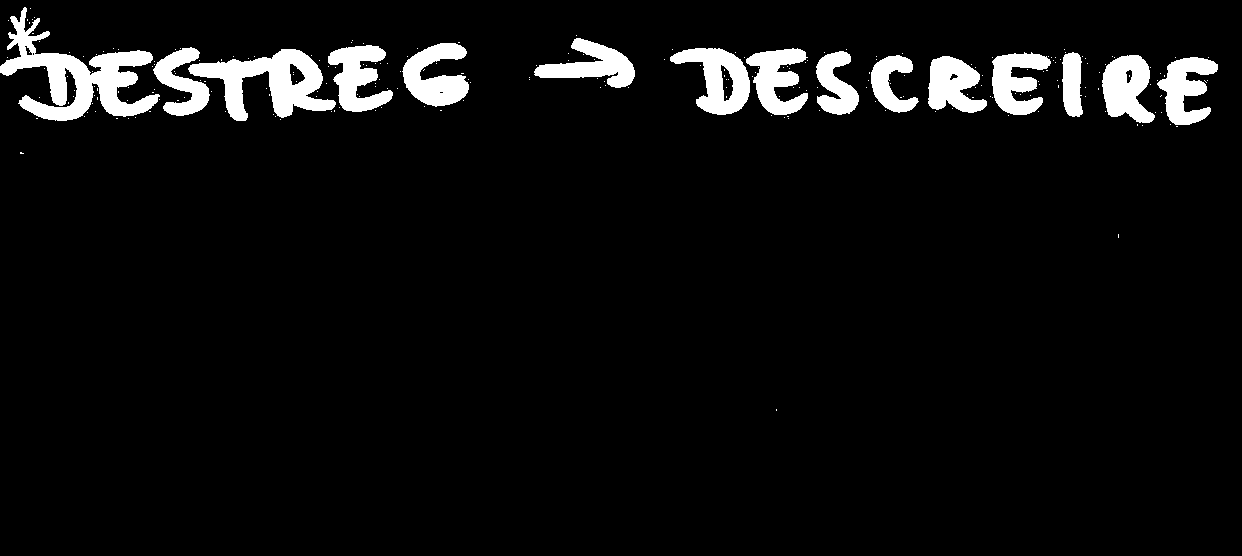 *DESTREG → DESCREIRE